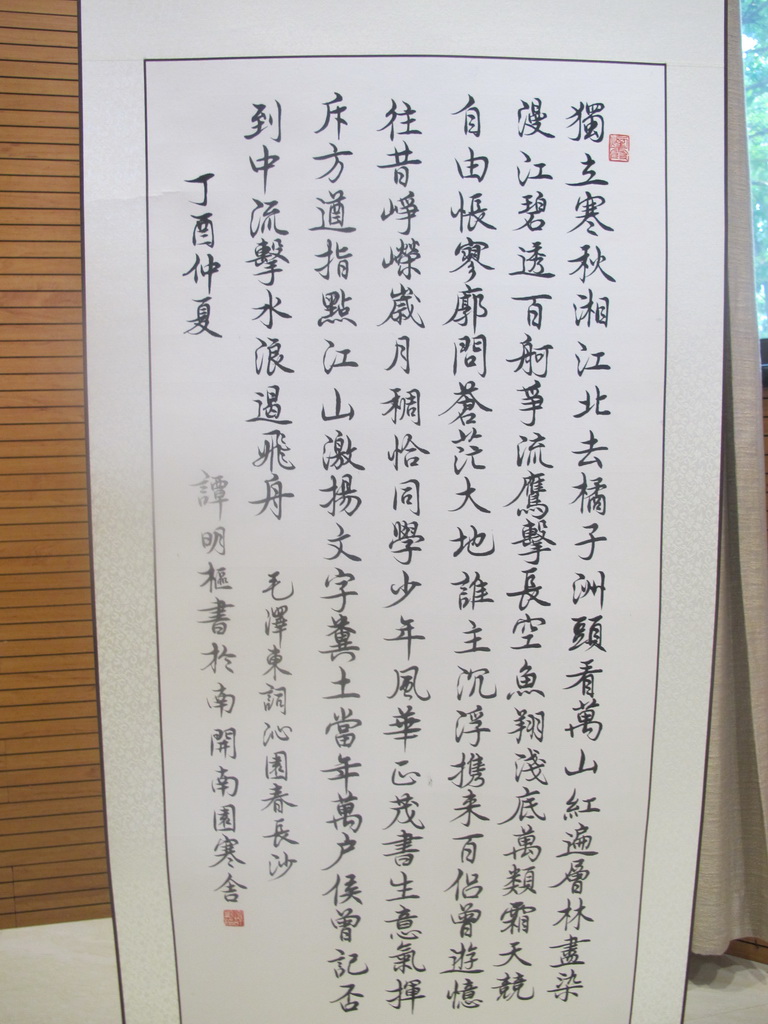 獨立寒秋湘江北去橘子洲頭看萬山紅遍層林盡染
漫江碧透百舸爭流鷹擊長空魚翔淺底萬類霜天競
自由悵寥廓問蒼茫大地誰主沉浮携来百侣曾遊憶
往昔崢嶸歲月稠恰同學少年風華正茂書生意氣揮
斥方遒指點江山激揚文字糞土當年萬户侯曾記否
到中流擊水浪遏飛舟 毛澤東詞沁園春長沙
丁酉仲夏 譚明樞書於南開南園寒舍